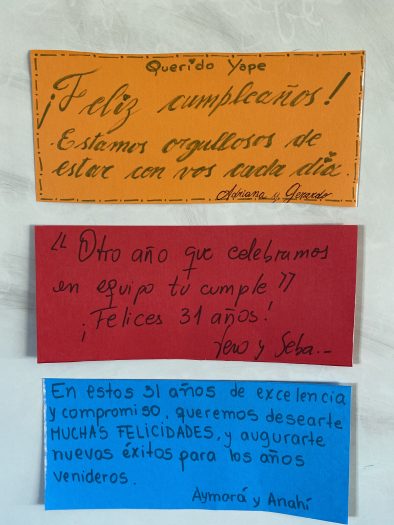 Querido Yape
¡Feliz cumpleaños!
Estamos orgullosos de
estar con vos cada día.
Adriana y Gerardo
"Otro año que celebramos
en equipo tu cumple"
¡Felices 31 años!
Yero y Seba.-
En estos 31 años de excelencia
y compromiso, queremos desearte
MUCHAS FELICIDADES, y augurarte
nuevos éxitos para los años
venideros.
Aymará y Anahí